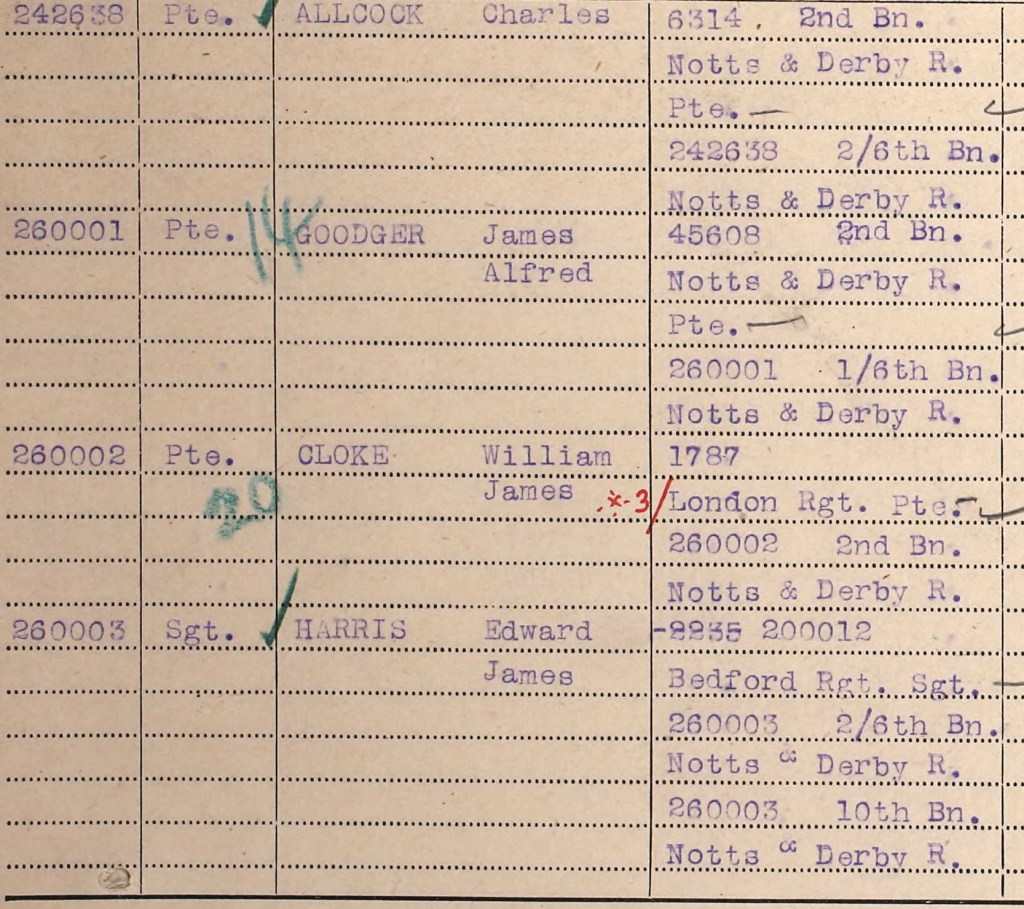 242638 Pte. ALLCOCK Charles 6314. 2nd Bn.
Notts & Derby R.
Pte. —
242638 2/6th Bn.
Notts & Derby R.
260001 Pte. 14 GOODGER James 45608 2nd Bn.
Alfred Notts & Derby R.
Pte. —
260001 1/6th Bn.
Notts & Derby R.
260002 Pte. CLOKE William 1787
20 James x-3/ London Rgt. Pte. -
260002 2nd Bn.
Notts & Derby R.
260003 Sgt. HARRIS Edward -2235 200012
James Bedford Rgt. Sgt. —
260003 2/6th Bn.
Notts & Derby R.
260003 10th Bn.
Notts & Derby R.